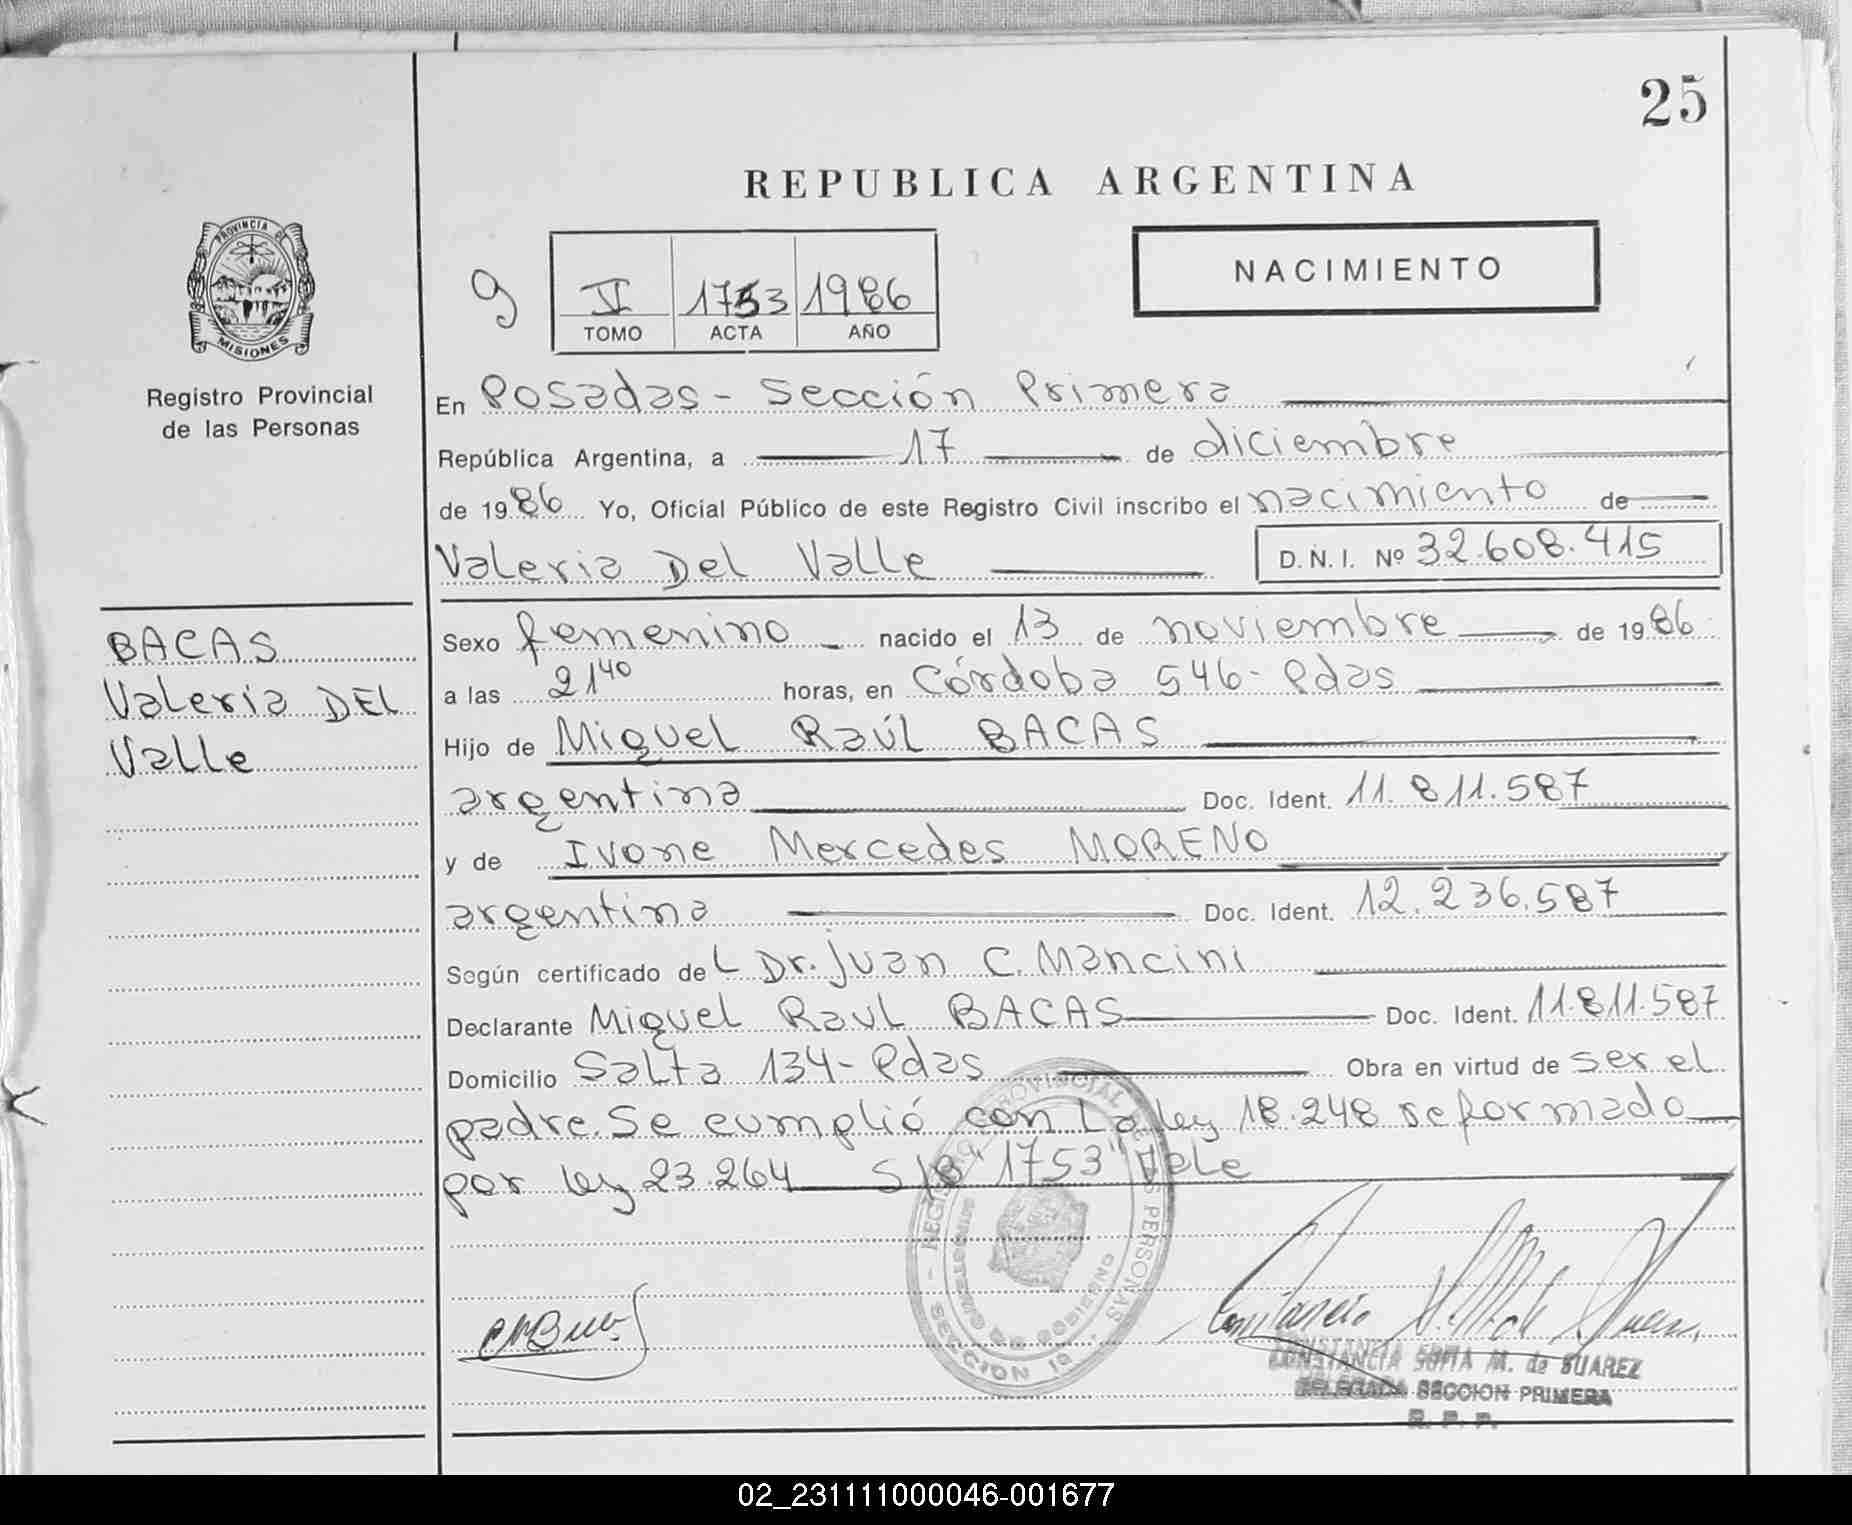 25
REPUBLICA ARGENTINA
PROVINCIA DE
MISIONES
Registro Provincial
de las Personas
9
V 1753 1986
TOMO ACTA AÑO
NACIMIENTO
En Posadas - Sección Primera
República Argentina, a 17 de diciembre
de 1986 Yo, Oficial Público de este Registro Civil inscribo el nacimiento de
Valeria Del Valle D.N.I. Nº 32.608.415
BACAS
Valeria DEL
Valle
Sexo femenino nacido el 13 de noviembre de 1986
a las 21 40 horas, en Córdoba 546 - Pdas
Hijo de Miguel Raúl BACAS
argentina Doc. Ident. 11.811.587
y de Ivone Mercedes MORENO
argentina Doc. Ident. 12.236.587
Según certificado del Dr. Juan C. Mancini
Declarante Miguel Raul BACAS Doc. Ident. 11.811.587
Domicilio Salta 134 - Pdas Obra en virtud de ser el
padre. Se cumplió con la ley 18.248 reformado
por ley 23.264 S/B "1753" Vale
REGISTRO PROVINCIAL DE LAS PERSONAS
MINISTERIO DE GOBIERNO
SECCION 1a
CONSTANCIA SOFIA M. de SUAREZ
DELEGADA SECCION PRIMERA
R. P. P.
02_231111000046-001677